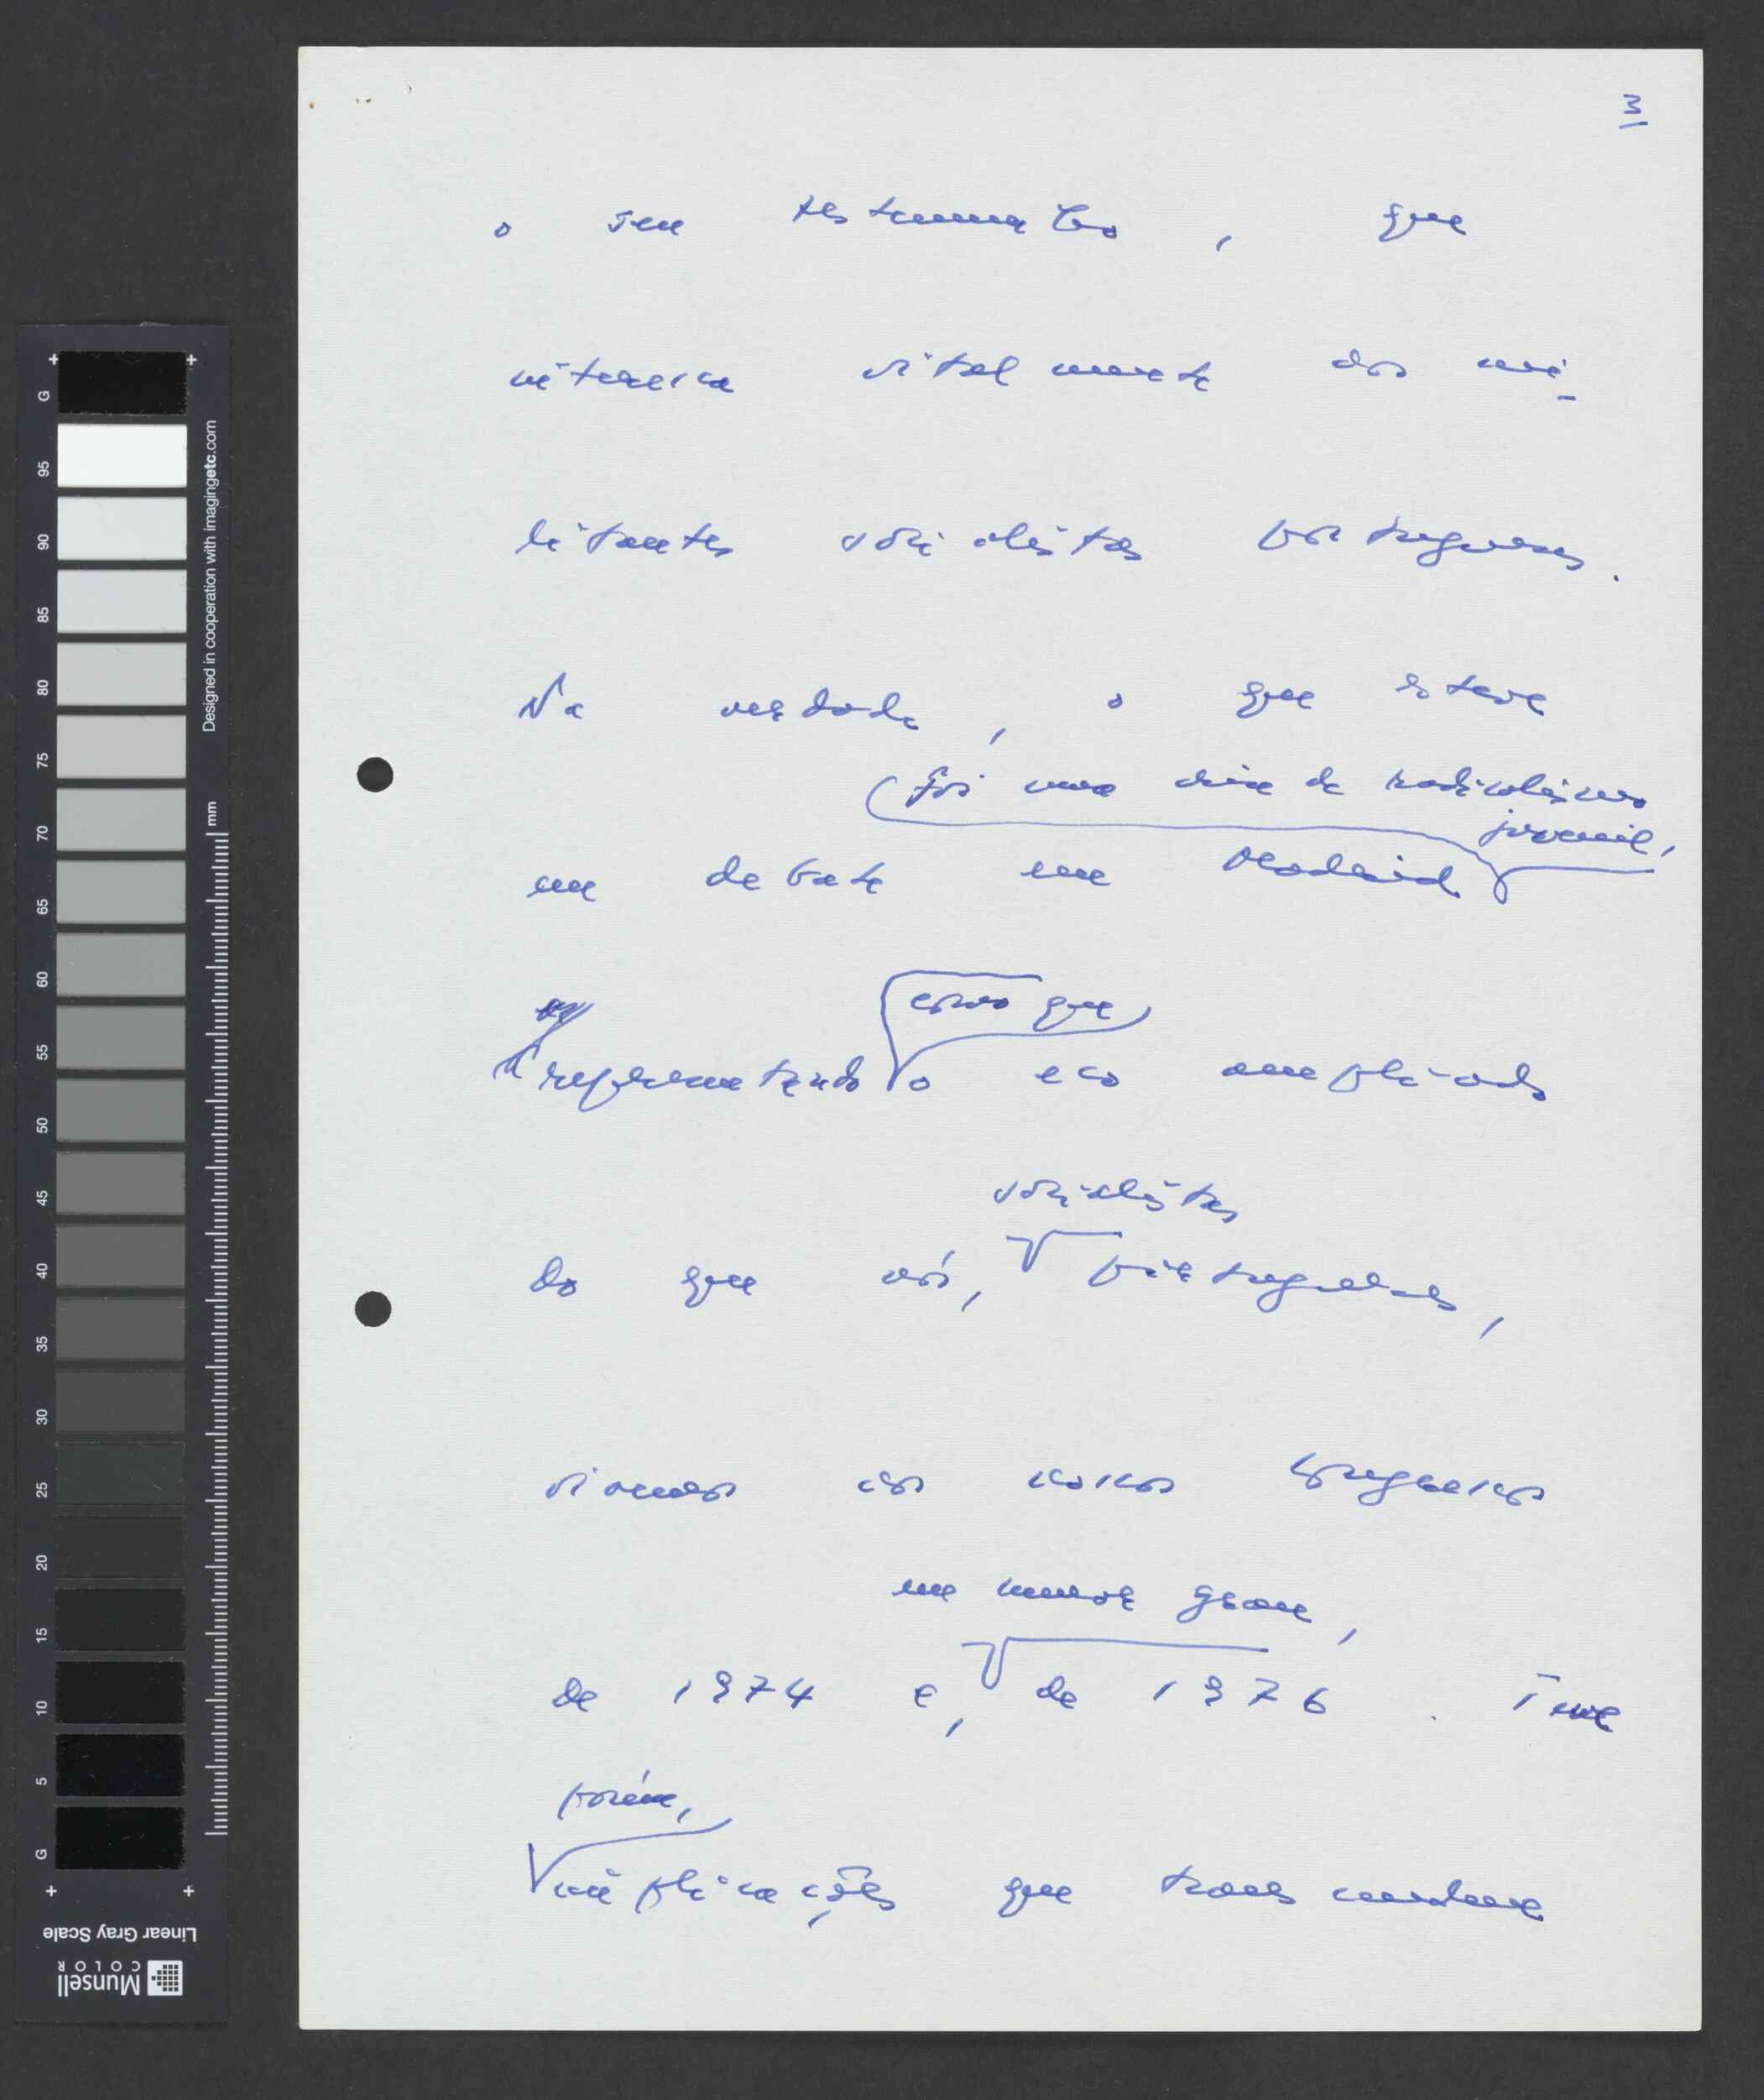 3
o seu testemunho, que
interessa vitalmente aos mi-
litantes socialistas portugueses.
Na verdade, o que esteve
foi uma crise de radicalismo
juvenil,
em debate em Madrid
representando como que o eco ampliado
socialistas
do que nós, portugueses,
vivemos nos nossos Congressos
em menor grau,
de 1974 e, de 1976. Teve
porém,
implicações que transcendem
G 95 90 85 80 75 70 65 60 55 50 45 40 35 30 25 20 15 10 5 G
mm
Designed in cooperation with imagingetc.com
Linear Gray Scale
Munsell
COLOR